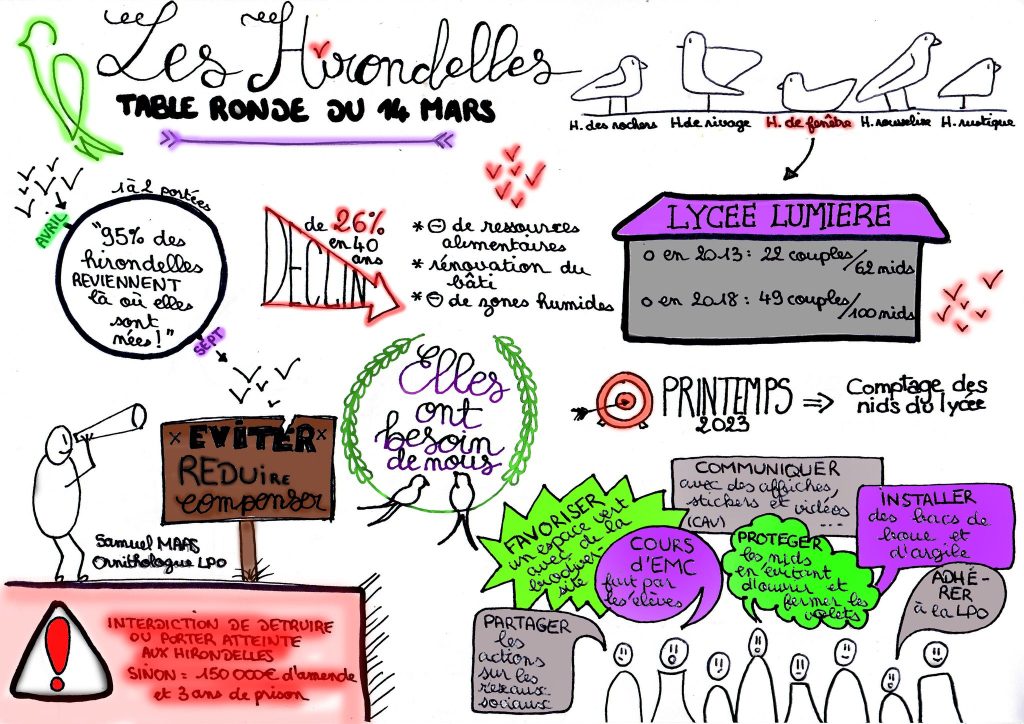 Les Hirondelles
TABLE RONDE DU 14 MARS
H. des rochers
H. de rivage
H. de fenêtre
H. rousseline
H. rustique
AVRIL
1 à 2 portées
"95% des
hirondelles
REVIENNENT
là où elles
sont
nées !"
SEPT
DECLIN
de 26%
en 40
ans
* ⊖ de ressources
alimentaires
* rénovation du
bâti
* ⊖ de zones humides
LYCEE LUMIERE
o en 2013 : 22 couples/62 nids
o en 2018 : 49 couples/100 nids
Elles
ont
besoin
de nous
PRINTEMPS
2023
⇒
Comptage des
nids du lycée
x EVITER x
REDUire
compenser
Samuel MAAS
Ornithologue LPO
INTERDICTION DE DETRUIRE
OU PORTER ATTEINTE
AUX HIRONDELLES
SINON : 150 000€ d'amende
et 3 ans de prison
FAVORISER
un espace vert
avec de la
biodiver-
sité
COURS
d'EMC
fait par
les élèves
COMMUNIQUER
avec des affiches,
stickers et vidéos
(CAV) ...
PROTEGER
les nids
en évitant
d'ouvrir et
fermer les
volets
INSTALLER
des bacs de
boue et
d'argile
ADHÉ-
RER
à la LPO
PARTAGER
les
actions
sur les
réseaux
sociaux